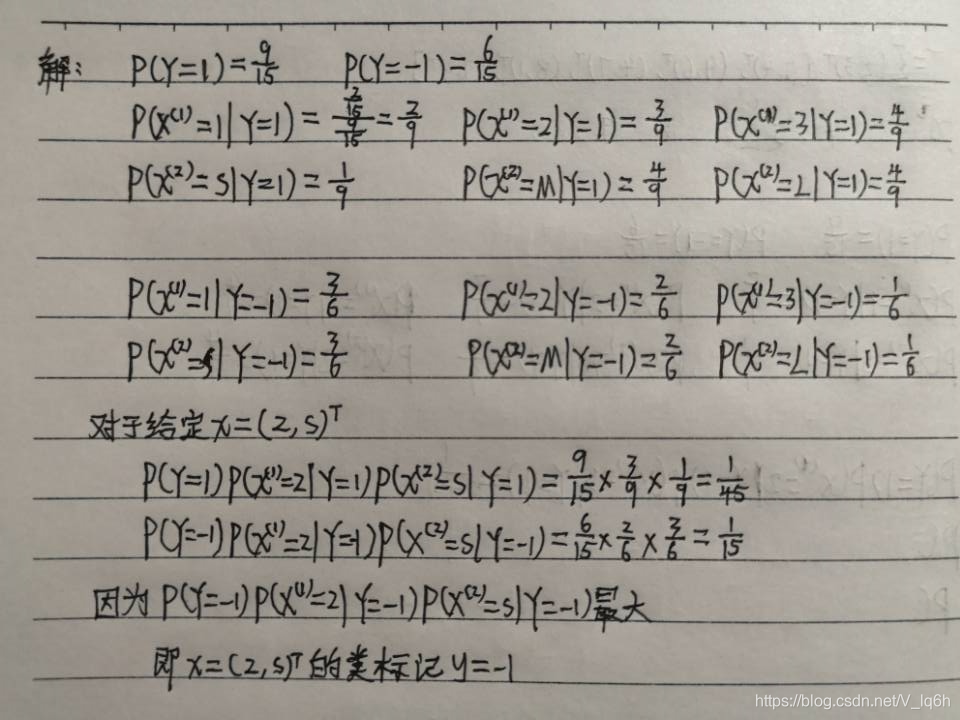 解: P(Y=1)=9/15 P(Y=-1)=6/15
P(X⁽¹⁾=1|Y=1)=(2/15)/(9/15)=2/9 P(x⁽¹⁾=2|Y=1)=3/9 P(x⁽¹⁾=3|Y=1)=4/9
P(x⁽²⁾=S|Y=1)=1/9 P(x⁽²⁾=M|Y=1)=4/9 P(x⁽²⁾=L|Y=1)=4/9
P(x⁽¹⁾=1|Y=-1)=3/6 P(x⁽¹⁾=2|Y=-1)=2/6 P(x⁽¹⁾=3|Y=-1)=1/6
P(x⁽²⁾=S|Y=-1)=3/6 P(x⁽²⁾=M|Y=-1)=2/6 P(x⁽²⁾=L|Y=-1)=1/6
对于给定x=(2,S)ᵀ
P(Y=1)P(x⁽¹⁾=2|Y=1)P(x⁽²⁾=S|Y=1)=9/15×3/9×1/9=1/45
P(Y=-1)P(x⁽¹⁾=2|Y=-1)P(x⁽²⁾=S|Y=-1)=6/15×2/6×3/6=1/15
因为 P(Y=-1)P(X⁽¹⁾=2|Y=-1)P(X⁽²⁾=S|Y=-1)最大
即 x=(2,S)ᵀ的类标记y=-1
https://blog.csdn.net/V_lq6h